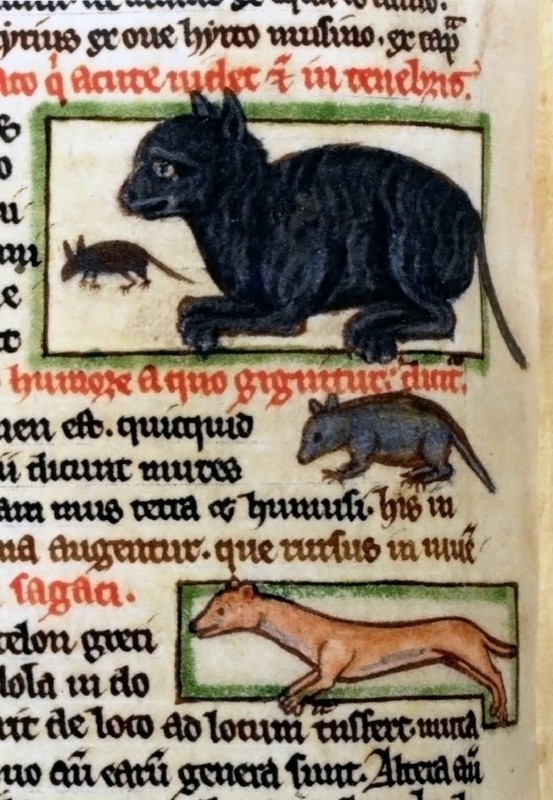 yrius ex oue hyrto musino. ex cap
ato q acute uidet ⁊ in tenebris.
humore a quo gignitur. dicit.
uen est. quicquid
dicunt mures
am mus terra ⁊ humusi. his in
na augentur. que rursus in
sagaci.
telon greci
dola in do
rit de loco ad locum t̄nsfert. muta
uo aū earū genera sunt. Altera aū